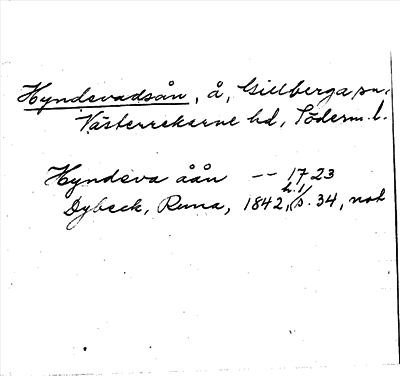 Hyndevadsån, å, Gillberga sn.
Västerrekarne hd, Söderm. l.
Hyndeva åån -- 1723
Dybeck, Runa, 1842, h.1/ s. 34, not